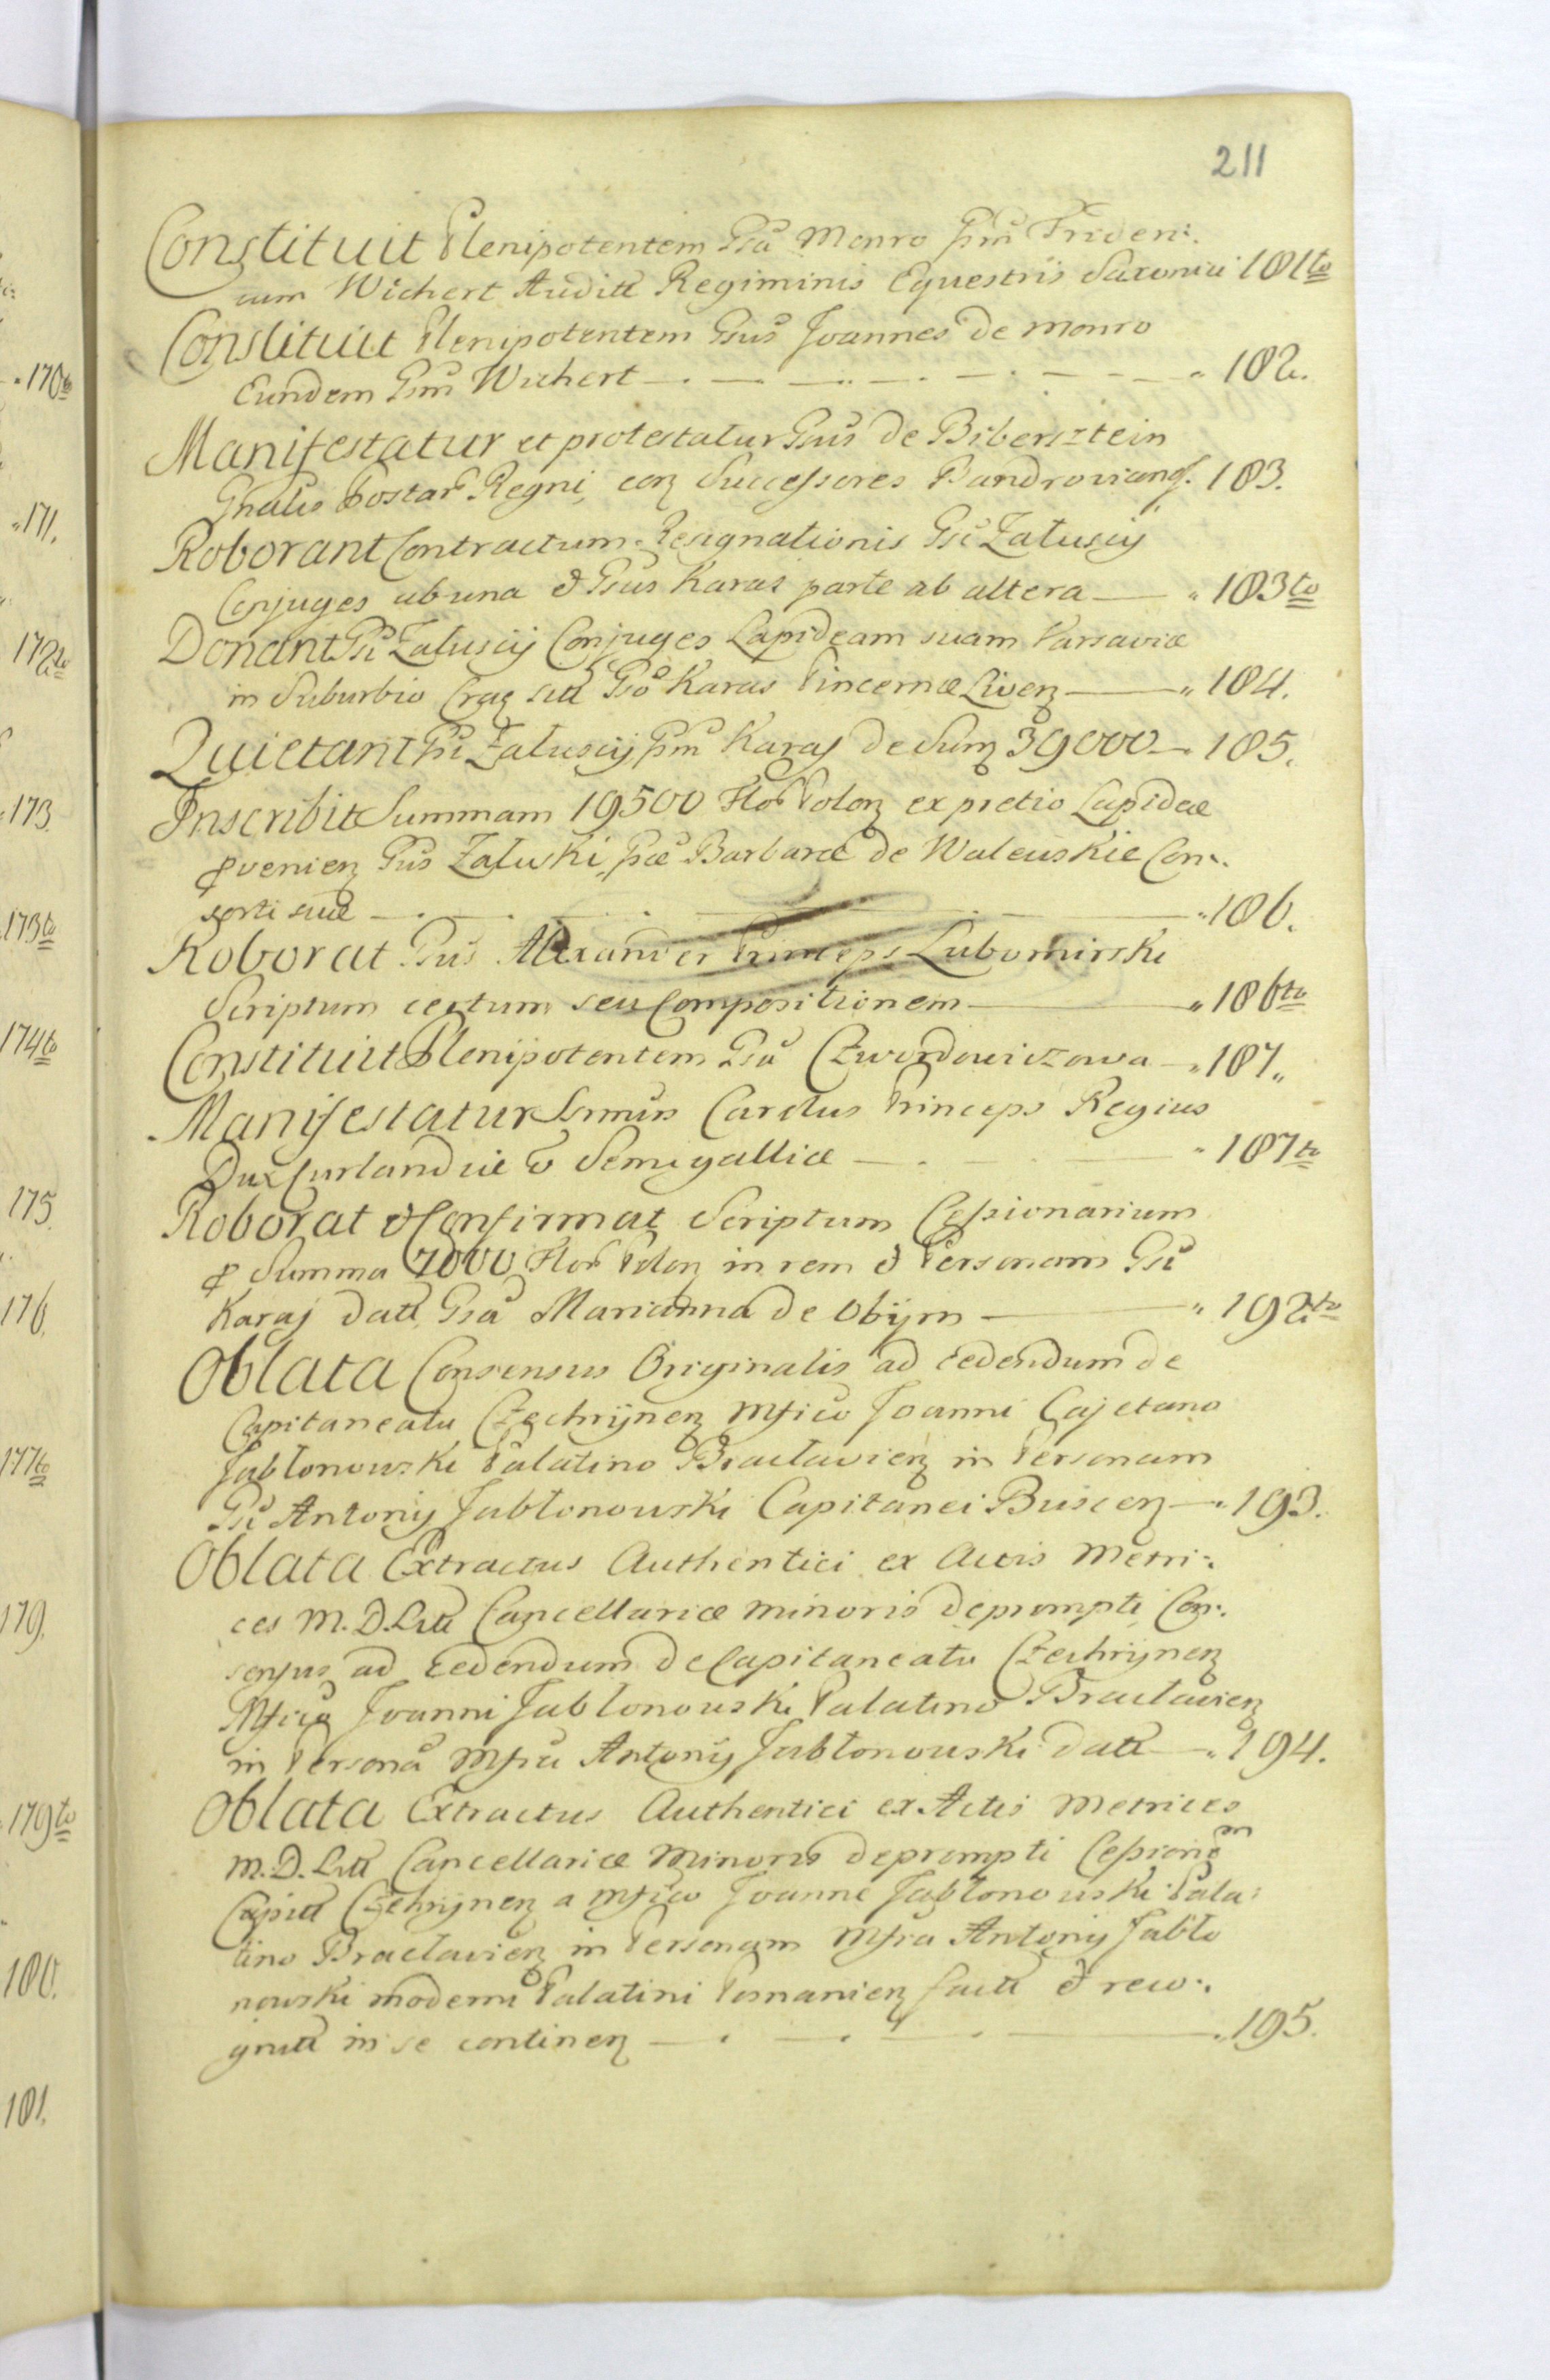 211
Constituit Plenipotentem Gsa Monro Gsm Frideri:
cum Wichert Auditt Regiminis Equestris Saxonici 181to
Constituit Plenipotentem Gsus Joannes de Monro
Eundem Gsm Wichert „ 182.
Manifestatur et protestatur Gsus de Bibersztein
Gnalis Postar Regni, con Successores Bandrovianos. 183.
Roborant Contractum Resignationis Gsi Załuscij
Conjuges ab una & Gsus Karas parte ab altera „ 183to
Donant Gsi Załuscij Conjuges Lapideam suam Varsaviæ
in Suburbio Crac sitt Gso Karas Pincernæ Liven „ 184.
Quietant Gsi Załuscij Gsm Karas de Sum 39000 185.
Inscribit Summam 19500 Flor Polon ex pretio Lapideæ
provenien Gsus Załuski, Gsæ Barbaræ de Walewskie Con:
sorti suæ „ 186.
Roborat Gsus Alexander Princeps Lubomirski
Scriptum certum seu Compositionem „ 186to
Constituit Plenipotentem Gsa Czwordowiczowa „ 187„
Manifestatur Srmus Carolus Princeps Regius
Dux Curlandiæ & Semigalliæ „ 187to
Roborat & Confirmat Scriptum Cessionarium
pro Summa 7000 Flor Polon in rem & Personam Gsi
Karas datt Gsa Marianna de Obijrn „ 192to
Oblata Consensus Originalis ad cedendum de
Capitaneatu Czechrijnen Mfico Joanni Cajetano
Jabłonowski Palatino Bracłavien in Personam
Gsi Antonij Jabłonowski Capitanei Buscen „ 193.
Oblata Extractus Authentici ex Actis Metri:
ces M. D. Litt Cancellariæ Minoris deprompti Con:
sensus ad cedendum de Capitaneatu Czechrijnen
Mfico Joanni Jabłonowski Palatino Bracłavien
in Persona Mfici Antonij Jabłonowski datt „ 194.
Oblata Extractus Authentici ex Actis Metrices
M. D. Litt Cancellariæ Minoris deprompti Cessionem
Capitt Czehrijnen a Mfico Joanne Jabłonowski Pala:
tino Bracłavien in Personam Mfici Antonij Jabło
nowski moderni Palatini Posnanien factt & reco:
gnitt in se continen „ 195.
170to
„171.
172to
173.
173to
174to
175.
176.
177to
179.
179to
180.
181.